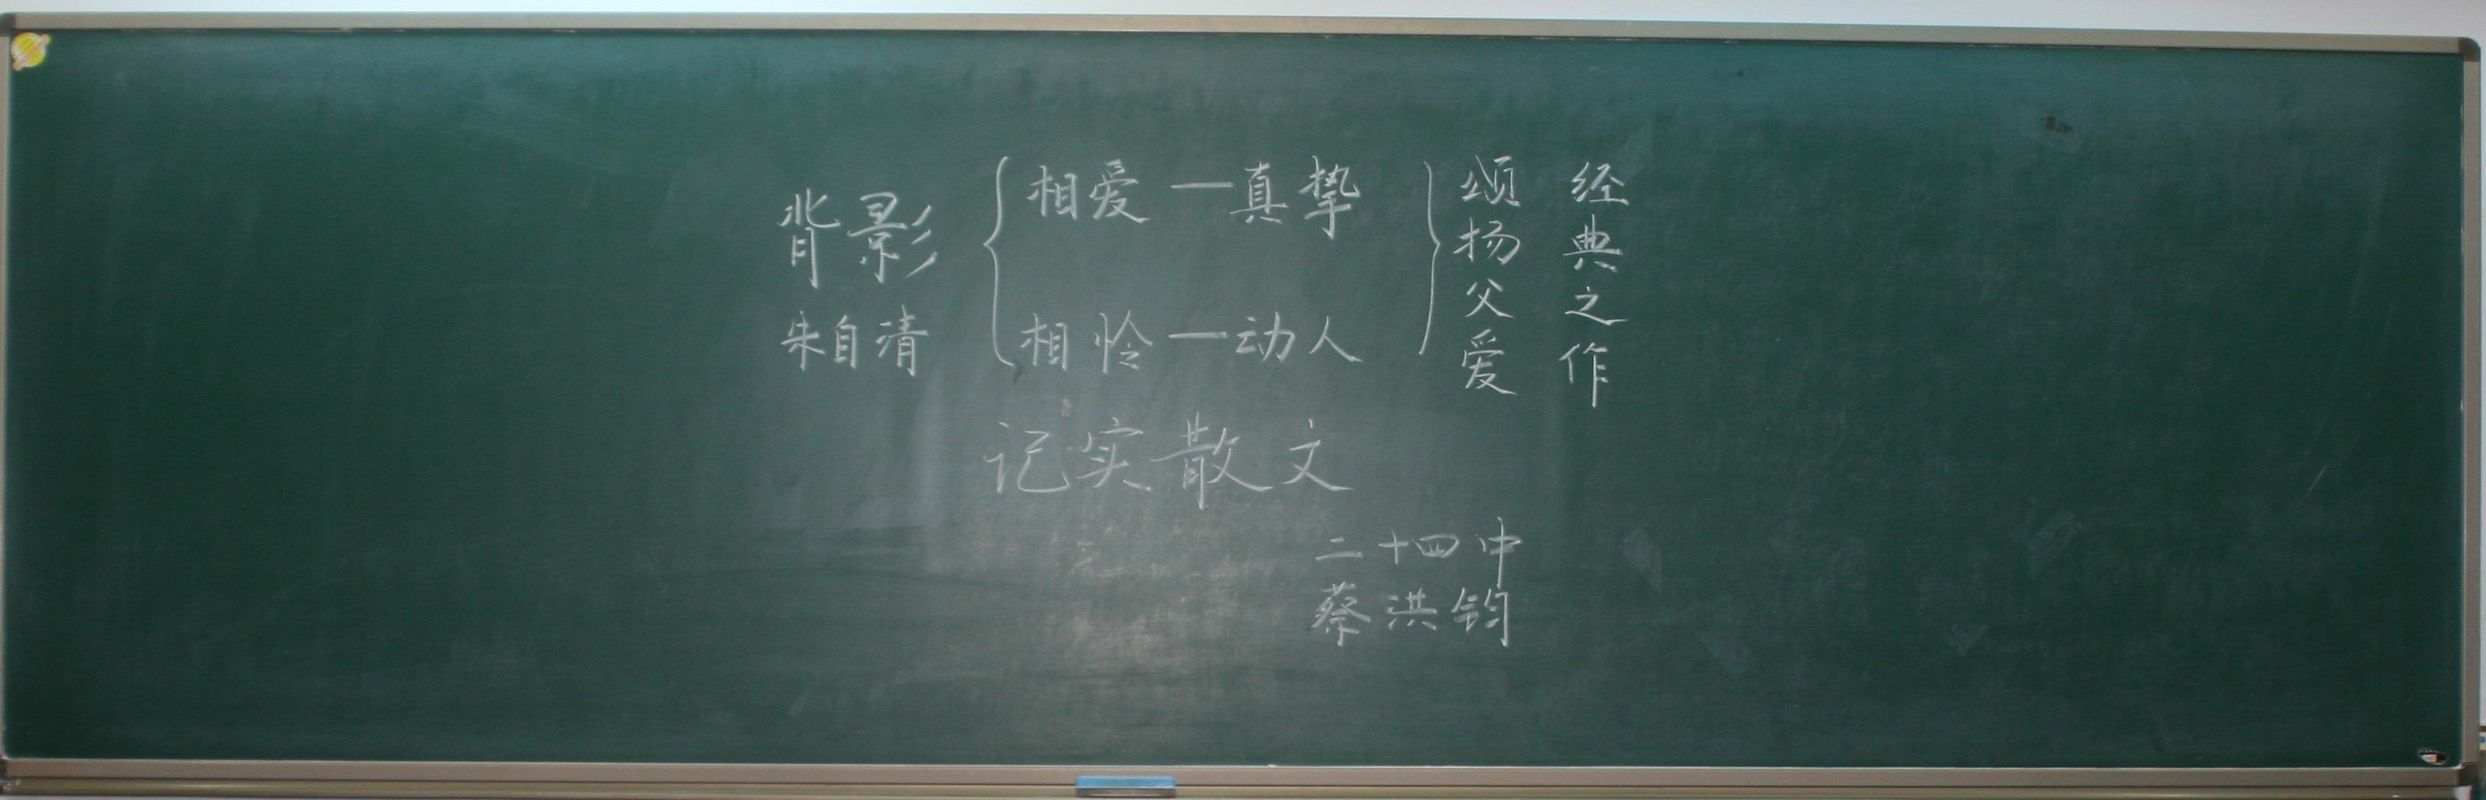 背影
朱自清
相爱—真挚
相怜—动人
颂扬父爱
经典之作
记实散文
二十四中
蔡洪钧